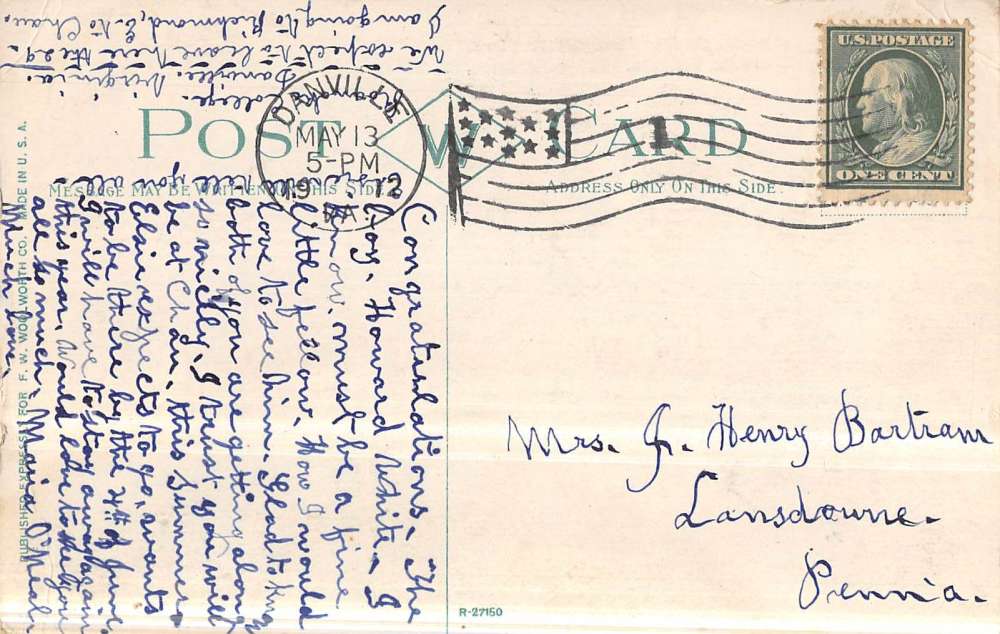 POST CARD
MESSAGE MAY BE WRITTEN ON THIS SIDE
ADDRESS ONLY ON THIS SIDE
U.S. POSTAGE
ONE CENT
DANVILLE
MAY 13
5-PM
19 2
VA.
1
Mrs. J. Henry Bartram
Lansdowne.
Penn'a.
Congratulations. The
boy, Howard White, I
know, must be a fine
little fellow. How I would
love to see him. Glad to know
both of you are getting along
so nicely. I trust you will
be at Chau. this Summer.
Elsie expects to go, wants
to be there by the 4th of June.
I will have to stay away again
this year. Would love to see you
all so much. Maria O'Neal.
Much love.
College.
Danville. Virginia.
We expect to leave here the 29.
I am going to Richmond, E. to Chau.
PUBLISHED EXPRESSLY FOR F. W. WOOLWORTH CO. MADE IN U. S. A.
R-27150